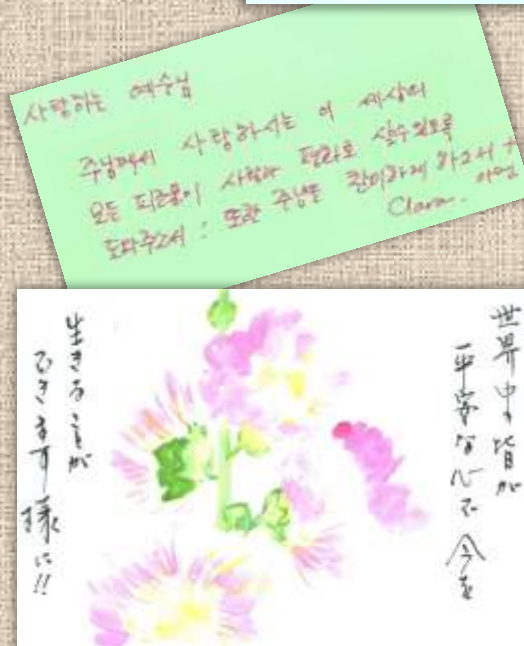 사랑하는 예수님
주님께서 사랑하시는 이 세상의
모든 피조물이 사랑과 평화로 살수있도록
도와주소서! 또한 주님을 찬미하게 하소서
아멘
Clara.
世界中皆が
平安な心で今を
生きることが
できます様に!!